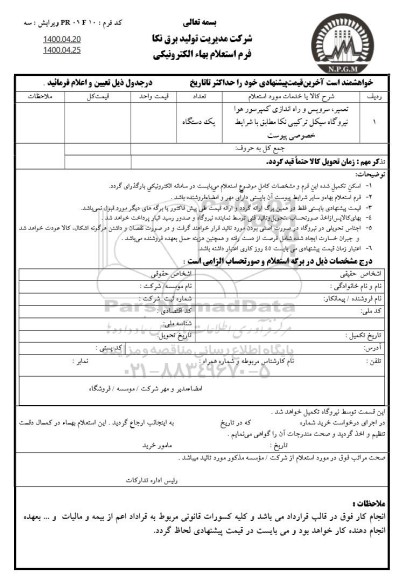 بسمه تعالی
کد فرم : PR ۰۱ F ۱۰ ویرایش : سه
شرکت مدیریت تولید برق نکا
فرم استعلام بهاء الکترونیکی
1400.04.20
1400.04.25
N.P.G.M
خواهشمند است آخرین قیمت پیشنهادی خود را حداکثر تا تاریخ درجدول ذیل تعیین و اعلام فرمائید .
ردیف شرح کالا یا خدمات مورد استعلام تعداد قیمت واحد قیمت کل ملاحظات
۱ تعمیر، سرویس و راه اندازی کمپرسور هوا یک دستگاه
نیروگاه سیکل ترکیبی نکا مطابق با شرایط
خصوصی پیوست
جمع کل به حروف:
تذکر مهم : زمان تحویل کالا حتماً قید گردد.
توضیحات:
۱- اسکن تکمیل شده این فرم و مشخصات کامل موضوع استعلام می‌بایست در سامانه الکترونیکی بارگذاری گردد.
۲- فرم استعلام بهاء و سایر شرایط پیوست آن بایستی دارای مهر و امضاء فروشنده باشد .
۳- قیمت پیشنهادی بایستی فقط در همین برگ ارائه گردد و ارائه قیمت طی پیش فاکتور یا برگه های دیگر مورد قبول نمی‌باشد.
۴- بهای کالا پس از اخذ صورتحساب، تحویل و تائید فنی توسط نماینده نیروگاه و صدور رسید انبار پرداخت خواهد شد .
۵- اجناس تحویلی در نیروگاه در صورت اصلی بودن مورد تائید قرار خواهند گرفت و در صورت نقصان و داشتن هرگونه اشکال، کالا عودت خواهد شد
و جبران خسارت ایجاد شده شامل فرصت از دست رفته و همچنین هزینه حمل بعهده فروشنده می‌باشد .
۶- اعتبار زمان قیمت پیشنهادی می بایست روز کاری اعتبار داشته باشد.
درج مشخصات ذیل در برگه استعلام و صورتحساب الزامی است :
اشخاص حقیقی اشخاص حقوقی
نام و نام خانوادگی : نام موسسه/ شرکت :
نام فروشنده / پیمانکار: شماره ثبت شرکت :
کد ملی: کد اقتصادی:
شناسه ملی:
تاریخ تکمیل : تاریخ تحویل:
آدرس: کد پستی :
تلفن : نام کارشناس مربوطه و شماره همراه نمابر :
امضاء مدیر و مهر شرکت / موسسه / فروشگاه
ParsNamadData
پایگاه اطلاع رسانی مناقصه و مزایده
۰۲۱-۸۸۳۴۹۶۷۰-۵
این قسمت توسط نیروگاه تکمیل خواهد شد .
در اجرای درخواست خرید شماره که در تاریخ به اینجانب ارجاع گردید . این استعلام بهاء در کمال دقت
تنظیم و اخذ گردید و صحت مندرجات آن را گواهی می‌نمایم .
تاریخ : مامور خرید
صحت مراتب فوق در مورد استعلام از شرکت / مؤسسه مذکور مورد تائید میباشد .
رئیس اداره تدارکات
ملاحظات :
انجام کار فوق در قالب قرارداد می باشد و کلیه کسورات قانونی مربوط به قرارداد اعم از بیمه و مالیات و ... بعهده
انجام دهنده کار خواهد بود و می بایست در قیمت پیشنهادی لحاظ گردد.